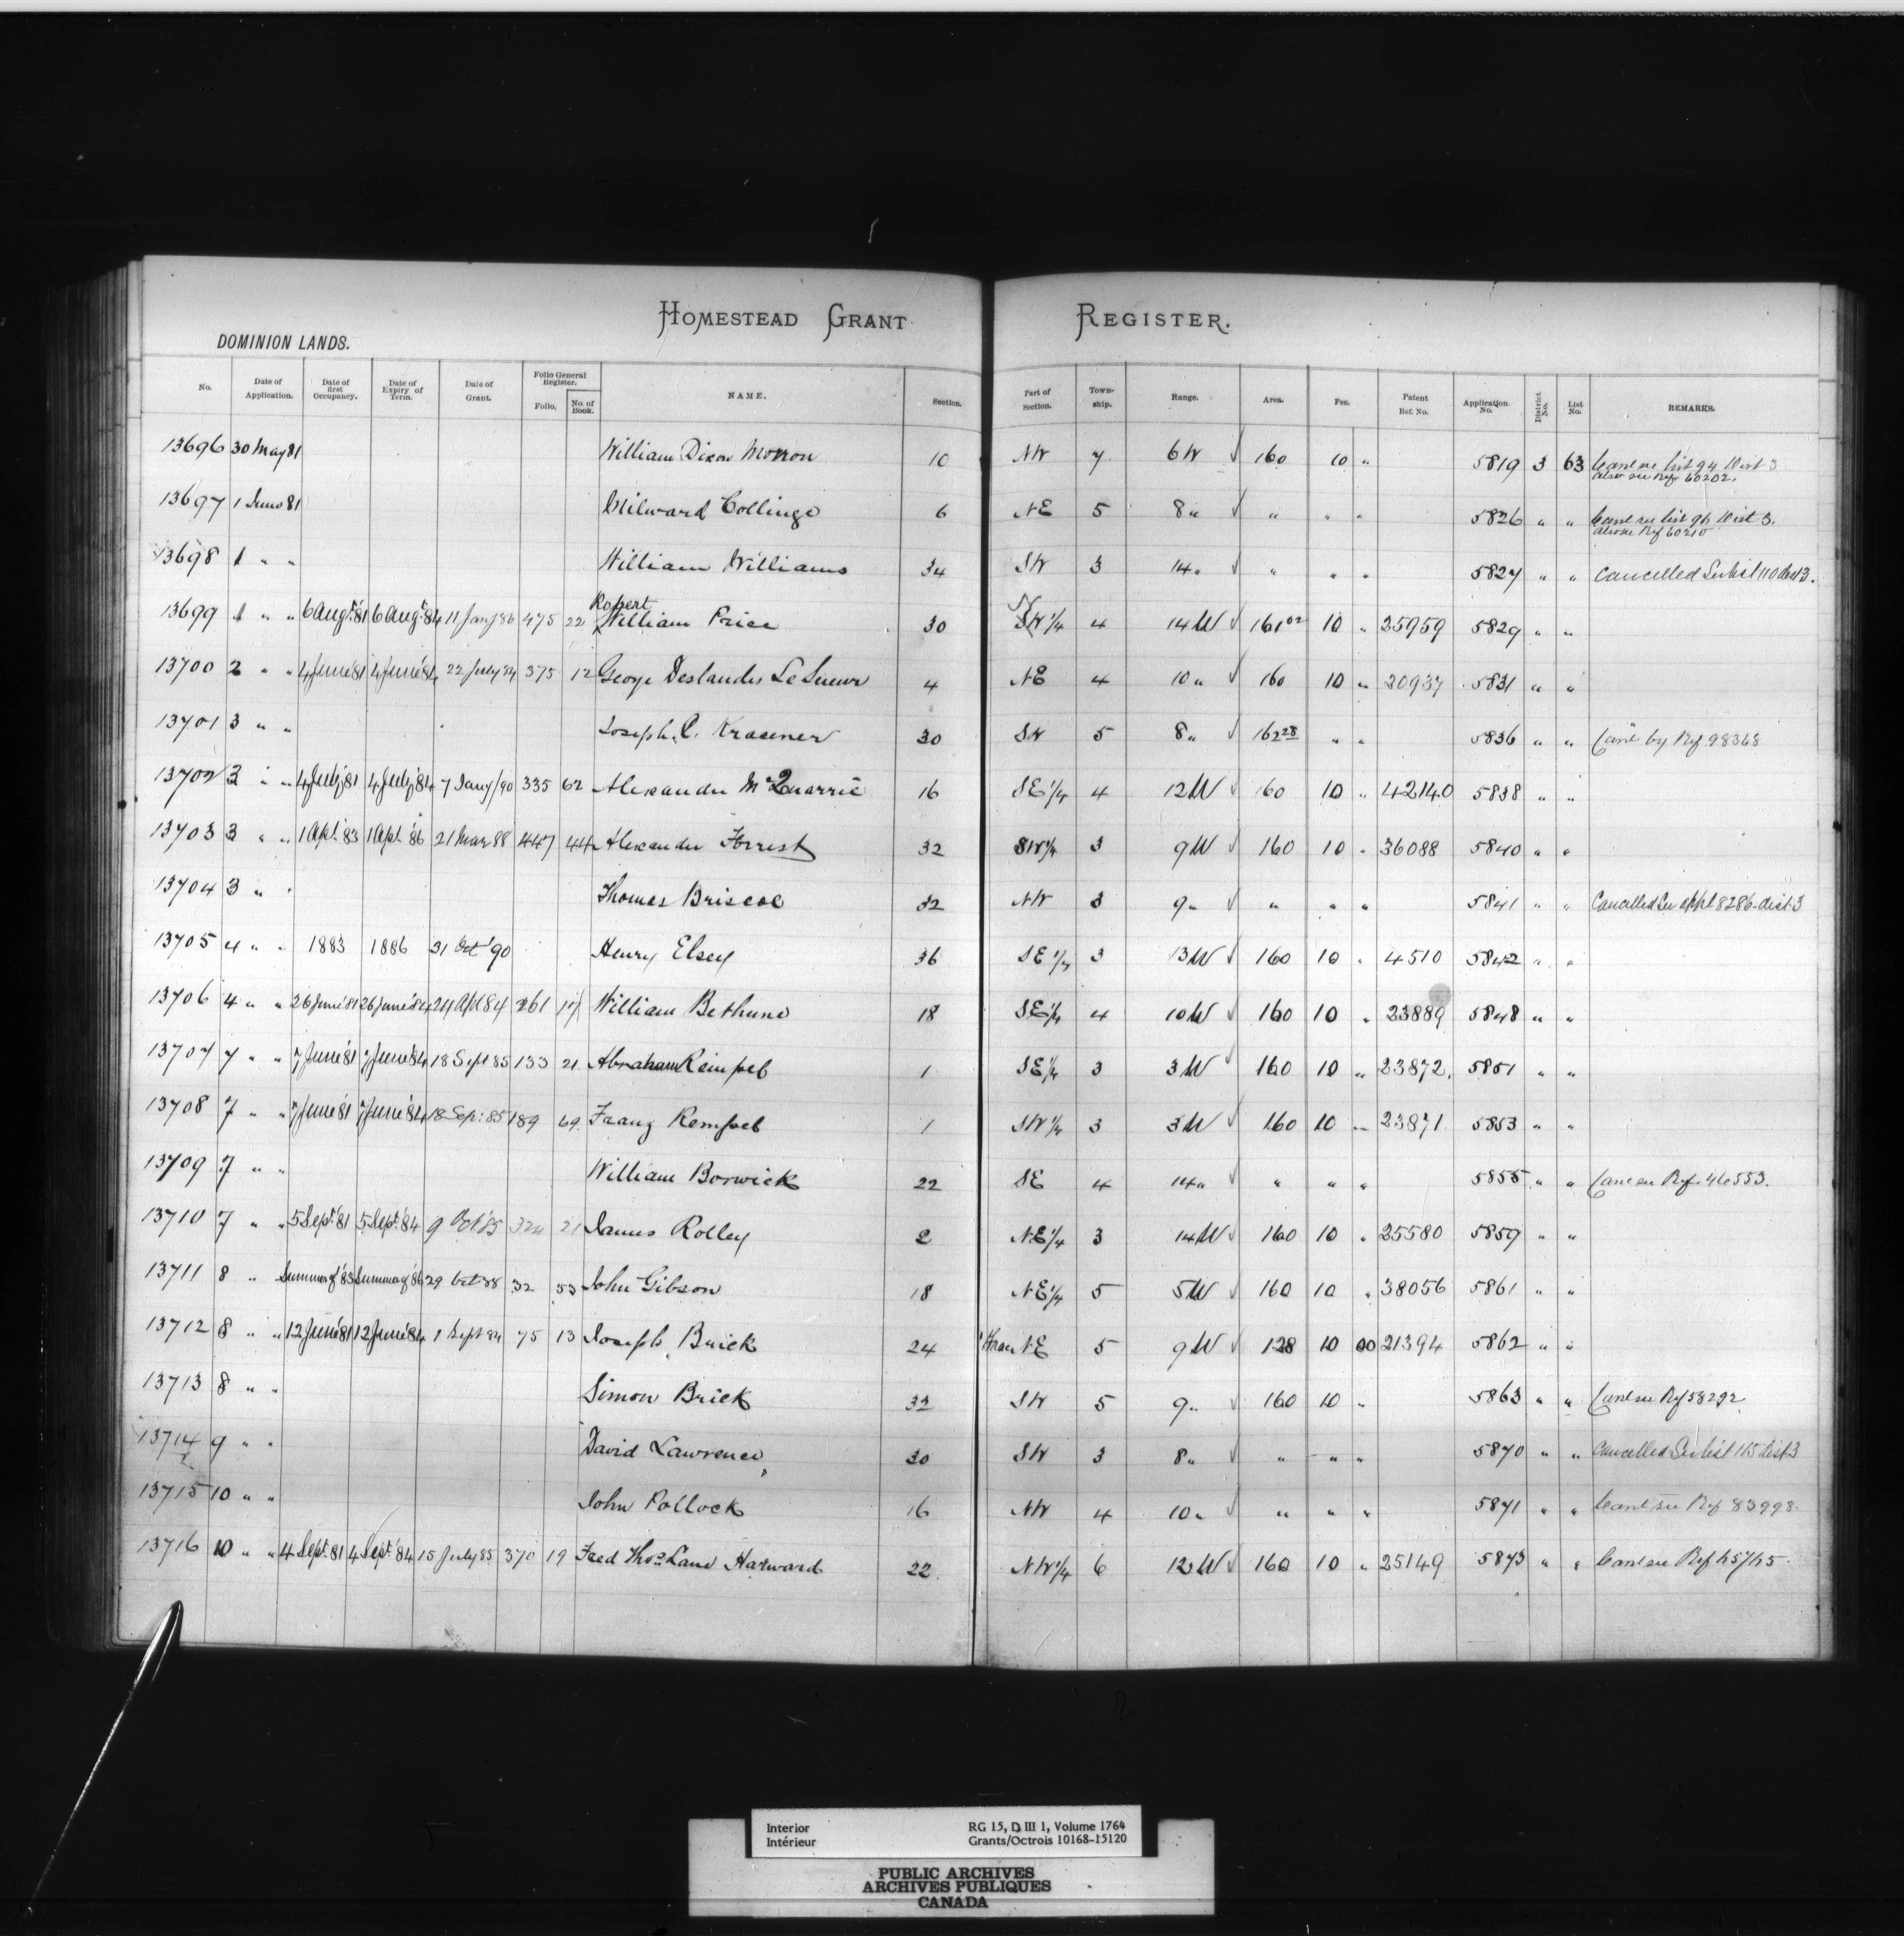 HOMESTEAD GRANT REGISTER.
DOMINION LANDS.
No. Date of Application. Date of first Occupancy. Date of Expiry of Term. Date of Grant. Folio General Register. Folio. No. of Book. NAME. Section. Part of Section. Town-ship. Range. Area. Fee. Patent Ref. No. Application No. District No. List No. REMARKS.
13696 30 May 81 William Dixon Morrow 10 NW 7 6W √ 160 10 " 5819 3 63 Canc see list 94 Dist 3
also see Ref 60202.
13697 1 June 81 Milward Collinge 6 NE 5 8 " √ " " " 5826 " " Canc see list 96 Dist 3.
also see Ref 60210
13698 1 " " William Williams 34 SW 3 14 " √ " " " 5827 " " Cancelled See list 110 dist 3.
Robert
13699 1 " " 6 Augt. '81 6 Augt. '84 11 Jany 86 475 22 William Price 30 SW 1/4 4 14 W √ 161 02 10 " 25959 5829 " "
13700 2 " " 4 June '81 4 June '84 22 July 84 375 12 George Deslandes Le Sueur 4 NE 4 10 " √ 160 10 " 20937 5831 " "
13701 3 " " Joseph. C. Krasener 30 SW 5 8 " √ 162 28 " " 5836 " " Canc by Ref 98368
13702 3 " " 4 July '81 4 July '84 7 Jany/90 335 62 Alexander McQuarrie 16 SE 1/4 4 12 W √ 160 10 " 42140 5838 " "
13703 3 " " 1 Apl. '83 1 Apl. '86 21 Mar 88 447 44 Alexander Forrest 32 SW 1/4 3 9 W √ 160 10 " 36088 5840 " "
13704 3 " " Thomas Briscoe 32 NW 3 9 " √ " " " 5841 " " Cancelled See appl 8286 dist. 3
13705 4 " " 1883 1886 31 Oct '90 Henry Elsey 36 SE 1/4 3 13 W √ 160 10 " 4510 5842 " "
13706 4 " " 26 June '81 26 June '84 24 Apl 84 261 17 William Bethune 18 SE 1/4 4 10 W √ 160 10 " 23889 5848 " "
13707 7 " " 7 June '81 7 June '84 18 Sept 85 133 21 Abraham Reimpel 1 SE 1/4 3 3 W √ 160 10 " 23872. 5851 " "
13708 7 " " 7 June '81 7 June '84 18 Sep: 85 189 69. Franz Rempel 1 SW 1/4 3 3 W √ 160 10 " 23871 5853 " "
13709 7 " " William Borwick 22 SE 4 14 " √ " " " 5855 " " Canc see Ref. 46553.
13710 7 " " 5 Sept. '81 5 Sept. '84 9 Oct 85 324 21 James Rolley 2 NE 1/4 3 14 W √ 160 10 " 25580 5859 " "
13711 8 " Summer of '83 Summer of '86 29 Oct 88 32 53 John Gibson 18 NE 1/4 5 5 W √ 160 10 " 38056 5861 " "
13712 8 " " 12 June '81 12 June '84 1 Sept 84 75 13 Joseph Brick 24 NE 5 9 W √ 128 10 00 21394 5862 " "
13713 8 " " Simon Brick 32 SW 5 9 " √ 160 10 " 5863 " " Canc see Ref 58292
13714 9 " " David Lawrence, 30 SW 3 8 " √ " " " 5870 " " Cancelled See list 115 dist 3
13715 10 " " John Pollock 16 NW 4 10 " √ " " " 5871 " " Canc see Ref 83998.
13716 10 " " 4 Sept. 81 4 Sept. '84 15 July 85 370 19 Fred Thos. Lane Harward 22 NW 1/4 6 12 W √ 160 10 " 25149 5873 " " Canc see Ref
Interior
Intérieur
RG 15, D III 1, Volume 1764
Grants/Octrois 10168-15120
PUBLIC ARCHIVES
ARCHIVES PUBLIQUES
CANADA